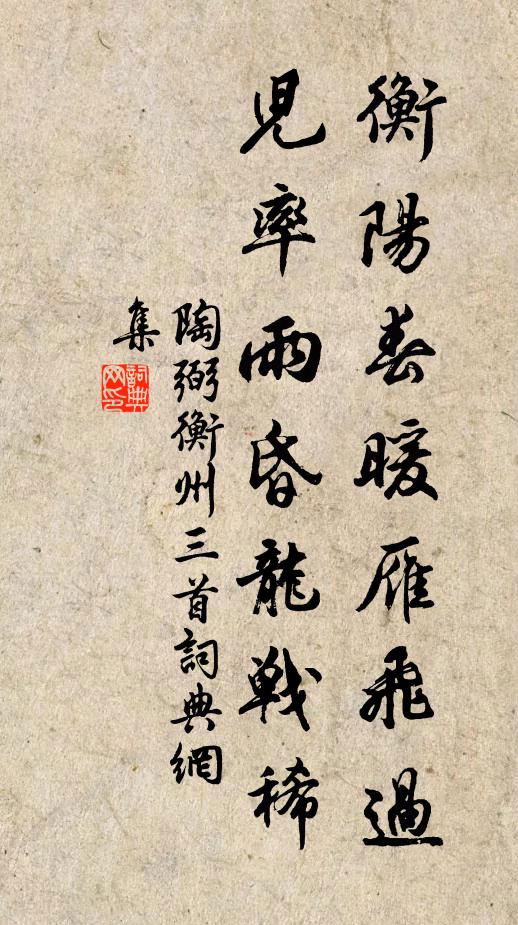 衡陽春暖雁飛過
見率雨昏龍戰稀
陶弼衡州三首詞典網
集
詞典网印